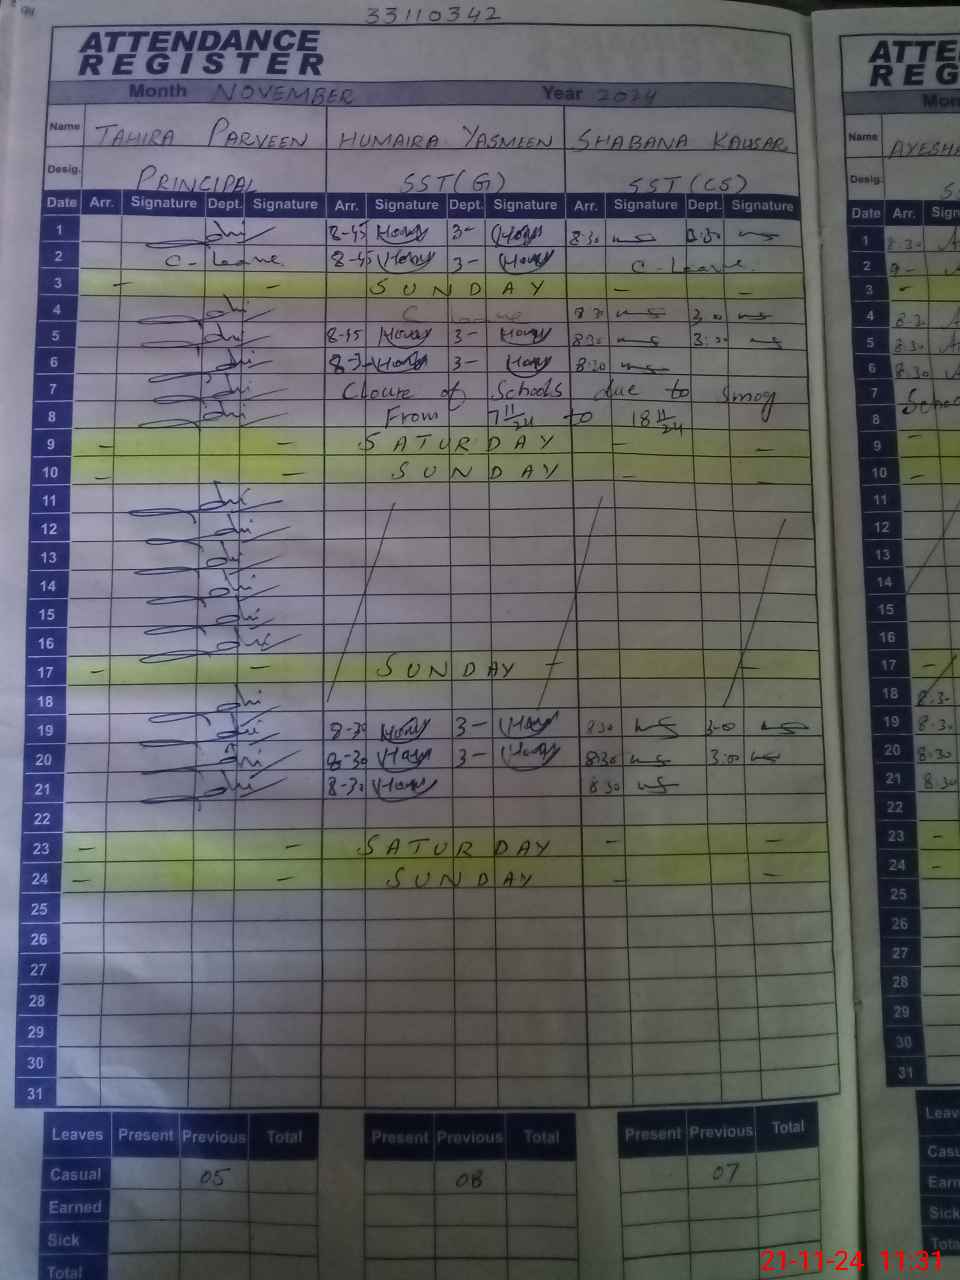 33110342
ATTENDANCE
REGISTER
Month NOVEMBER Year 2024
Name TAHIRA PARVEEN HUMAIRA YASMEEN SHABANA KAUSAR
Desig. PRINCIPAL SST(G) SST(CS)
Date Arr. Signature Dept. Signature Arr. Signature Dept. Signature Arr. Signature Dept. Signature
1 8-45 3- 8:30 3:30
2 C-Leave 8-45 3- C-Leave
3 - - SUNDAY - -
4 C leave 8:30 3:00
5 8-45 3- 8:30 3:00
6 8-30 3- 8:30
7 Cloure of Schools due to Smog
8 From 7 11/24 to 18 11/24
9 - - SATURDAY - -
10 - - SUNDAY - -
11
12
13
14
15
16
17 - - SUNDAY - -
18
19 8-30 3- 8:30 3:00
20 8-30 3- 8:30 3:00
21 8-30 8:30
22
23 - - SATURDAY - -
24 - - SUNDAY - -
25
26
27
28
29
30
31
Leaves Present Previous Total Present Previous Total Present Previous Total
Casual 05 08 07
Earned
Sick
Total
ATTE
REG
Mon
Name AYESHA
Desig. S
Date Arr. Sign
1 8.30
2 9-
3 -
4 8-30
5 8:30
6 8.30
7 School
8
9 -
10 -
11
12
13
14
15
16
17 -
18 8:30
19 8-30
20 8:30
21 8:30
22
23 -
24 -
25
26
27
28
29
30
31
Leav
Casu
Earn
Sick
Tota
21-11-24 11:31